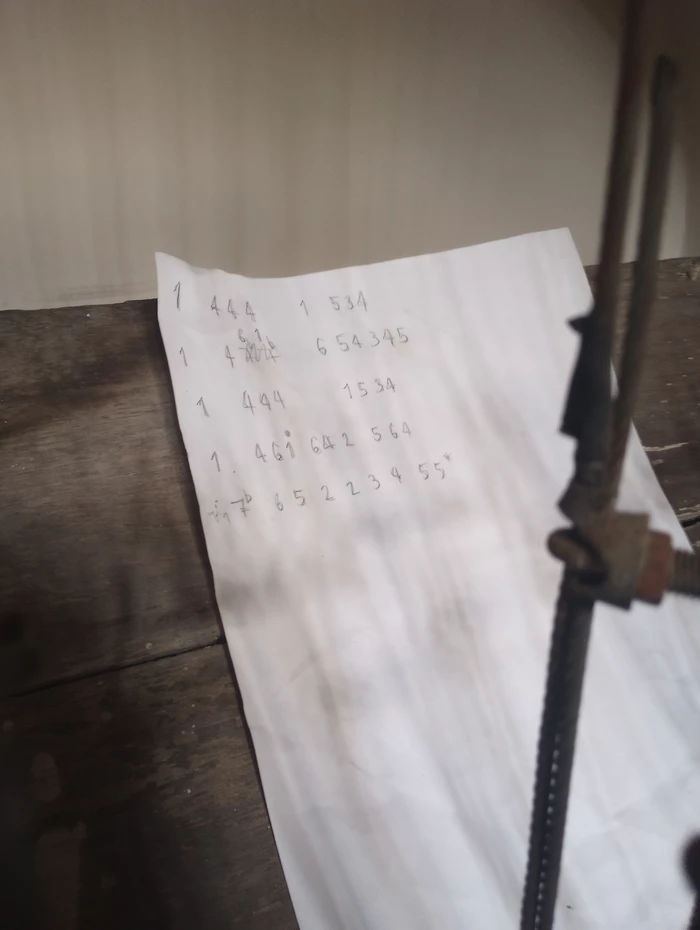 1 444 1 534
1 4 61 654345
1 444 1534
1. 461 642 564
7 6 5 2 2 3 4 55